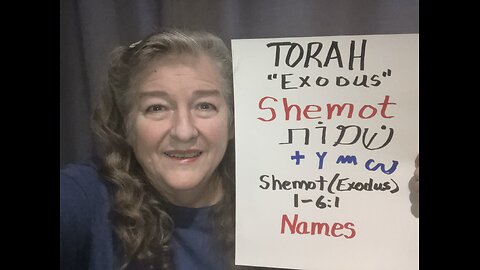 TORAH
"Exodus"
Shemot
שמות
𐤔𐤌𐤅𐤕
Shemot (Exodus)
1-6:1
Names